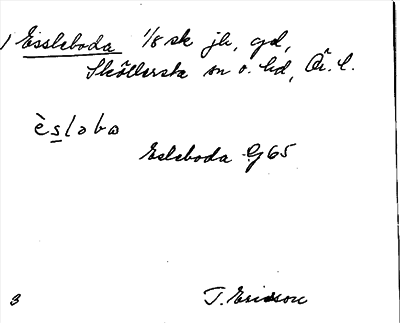 ) Essleboda 1/8 sk jb, gd,
Sköllersta sn o. hd, Ör. l.
èsləbω
Esleboda G65
3 T. Ericsson